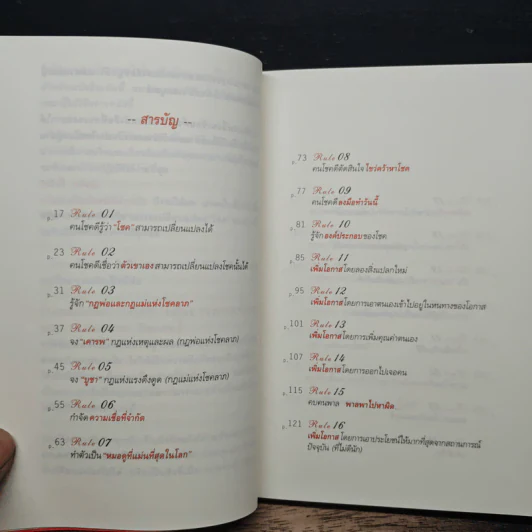 -- สารบัญ --
p.17 Rule 01
คนโชคดีรู้ว่า "โชค" สามารถเปลี่ยนแปลงได้
p.23 Rule 02
คนโชคดีเชื่อว่าตัวเขาเองสามารถเปลี่ยนแปลงโชคนั้นได้
p.31 Rule 03
รู้จัก "กฎพ่อและกฎแม่แห่งโชคลาภ"
p.37 Rule 04
จง "เคารพ" กฎแห่งเหตุและผล (กฎพ่อแห่งโชคลาภ)
p.45 Rule 05
จง "บูชา" กฎแห่งแรงดึงดูด (กฎแม่แห่งโชคลาภ)
p.55 Rule 06
กำจัดความเชื่อที่จำกัด
p.63 Rule 07
ทำตัวเป็น "หมอดูที่แม่นที่สุดในโลก"
p.73 Rule 08
คนโชคดีตัดสินใจไขว่คว้าหาโชค
p.77 Rule 09
คนโชคดีลงมือทำวันนี้
p.81 Rule 10
รู้จักองค์ประกอบของโชค
p.85 Rule 11
เพิ่มโอกาสโดยลองสิ่งแปลกใหม่
p.95 Rule 12
เพิ่มโอกาสโดยการเอาตนเองเข้าไปอยู่ในหนทางของโอกาส
p.101 Rule 13
เพิ่มโอกาสโดยการเพิ่มคุณค่าตนเอง
p.107 Rule 14
เพิ่มโอกาสโดยการออกไปเจอคน
p.115 Rule 15
คบคนพาล พาลพาไปหาผิด
p.121 Rule 16
เพิ่มโอกาสโดยการเอาประโยชน์ให้มากที่สุดจากสถานการณ์
ปัจจุบัน (ที่ไม่ดีนัก)